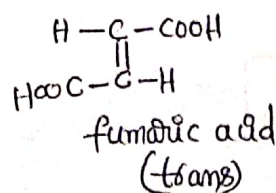 H-C-COOH
||
HOOC-C-H
fumaric acid
(trans)